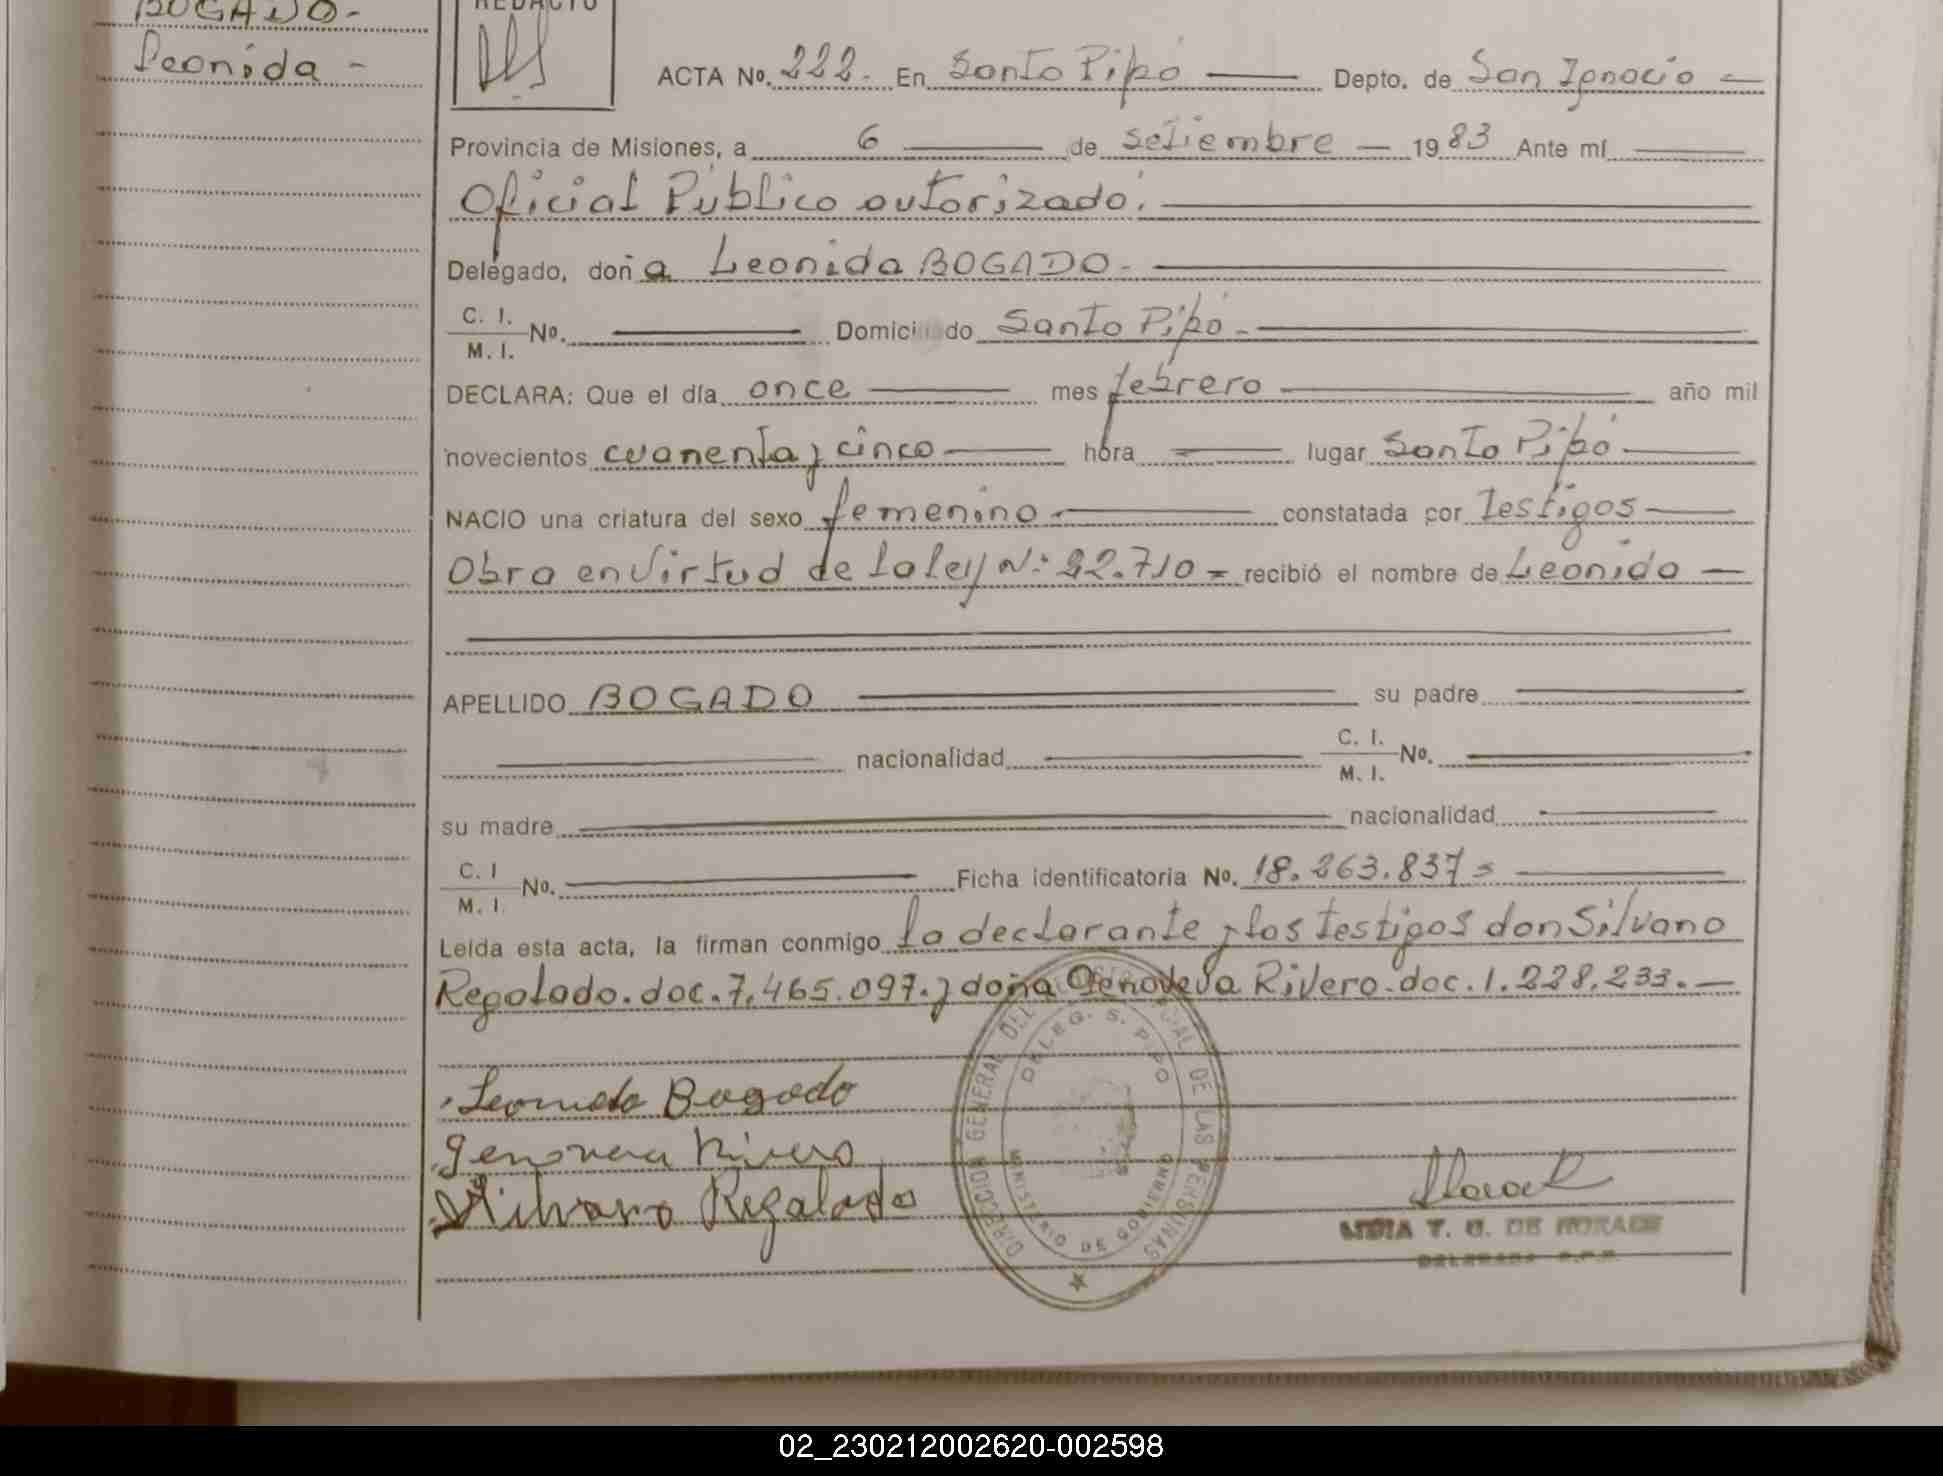 BOGADO-
Leonida -
REDACTO
ACTA No. 222. En Santo Pipó Depto. de San Ignacio -
Provincia de Misiones, a 6 de setiembre - 1983 Ante mí
Oficial Público autorizado.
Delegado, doña Leonida BOGADO.-
C. I.
M. I. No. Domiciliado Santo Pipó.-
DECLARA: Que el día once mes febrero año mil
novecientos cuarenta y cinco hora lugar Santo Pipó
NACIO una criatura del sexo femenino constatada por testigos
Obra en virtud de la ley Nº 22.710 = recibió el nombre de Leonida -
APELLIDO BOGADO su padre
nacionalidad C. I.
M. I. No.
su madre nacionalidad
C. I
M. I. No. Ficha identificatoria No. 18.263.837=
Leída esta acta, la firman conmigo la declarante y los testigos don Silvano
Regalado.doc.7.465.097.y doña Genoveva Rivero.doc.1.228.233.-
Leonida Bogado
Genoveva Rivero
Silvano Regalado
DIRECCION GENERAL DEL DE LAS PERSONAS
DELEG. S. PIPO
MINISTERIO DE GOBIERNO
LIDIA T. G. DE MORAES
DELEGADA R.P.P.
02_230212002620-002598